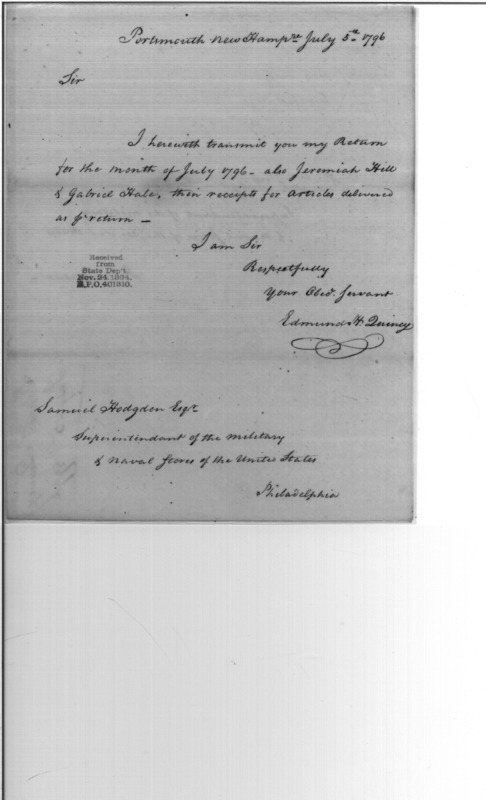 Portsmouth New Hampre July 5th 1796
Sir
I herewith transmit you my Return
for the month of July 1796 - also Jeremiah Hill
& Gabriel Hale, their receipts for Articles delivered
as pr return -
I am Sir
Respectfully
Your Obed. Servant
Edmund H. Quincy
Received
from
State Dep't.
Nov. 24, 1894.
R.P.O. 401810.
Samuel Hodgdon Esqr
Superintendant of the military
& Naval Stores of the United States
Philadelphia